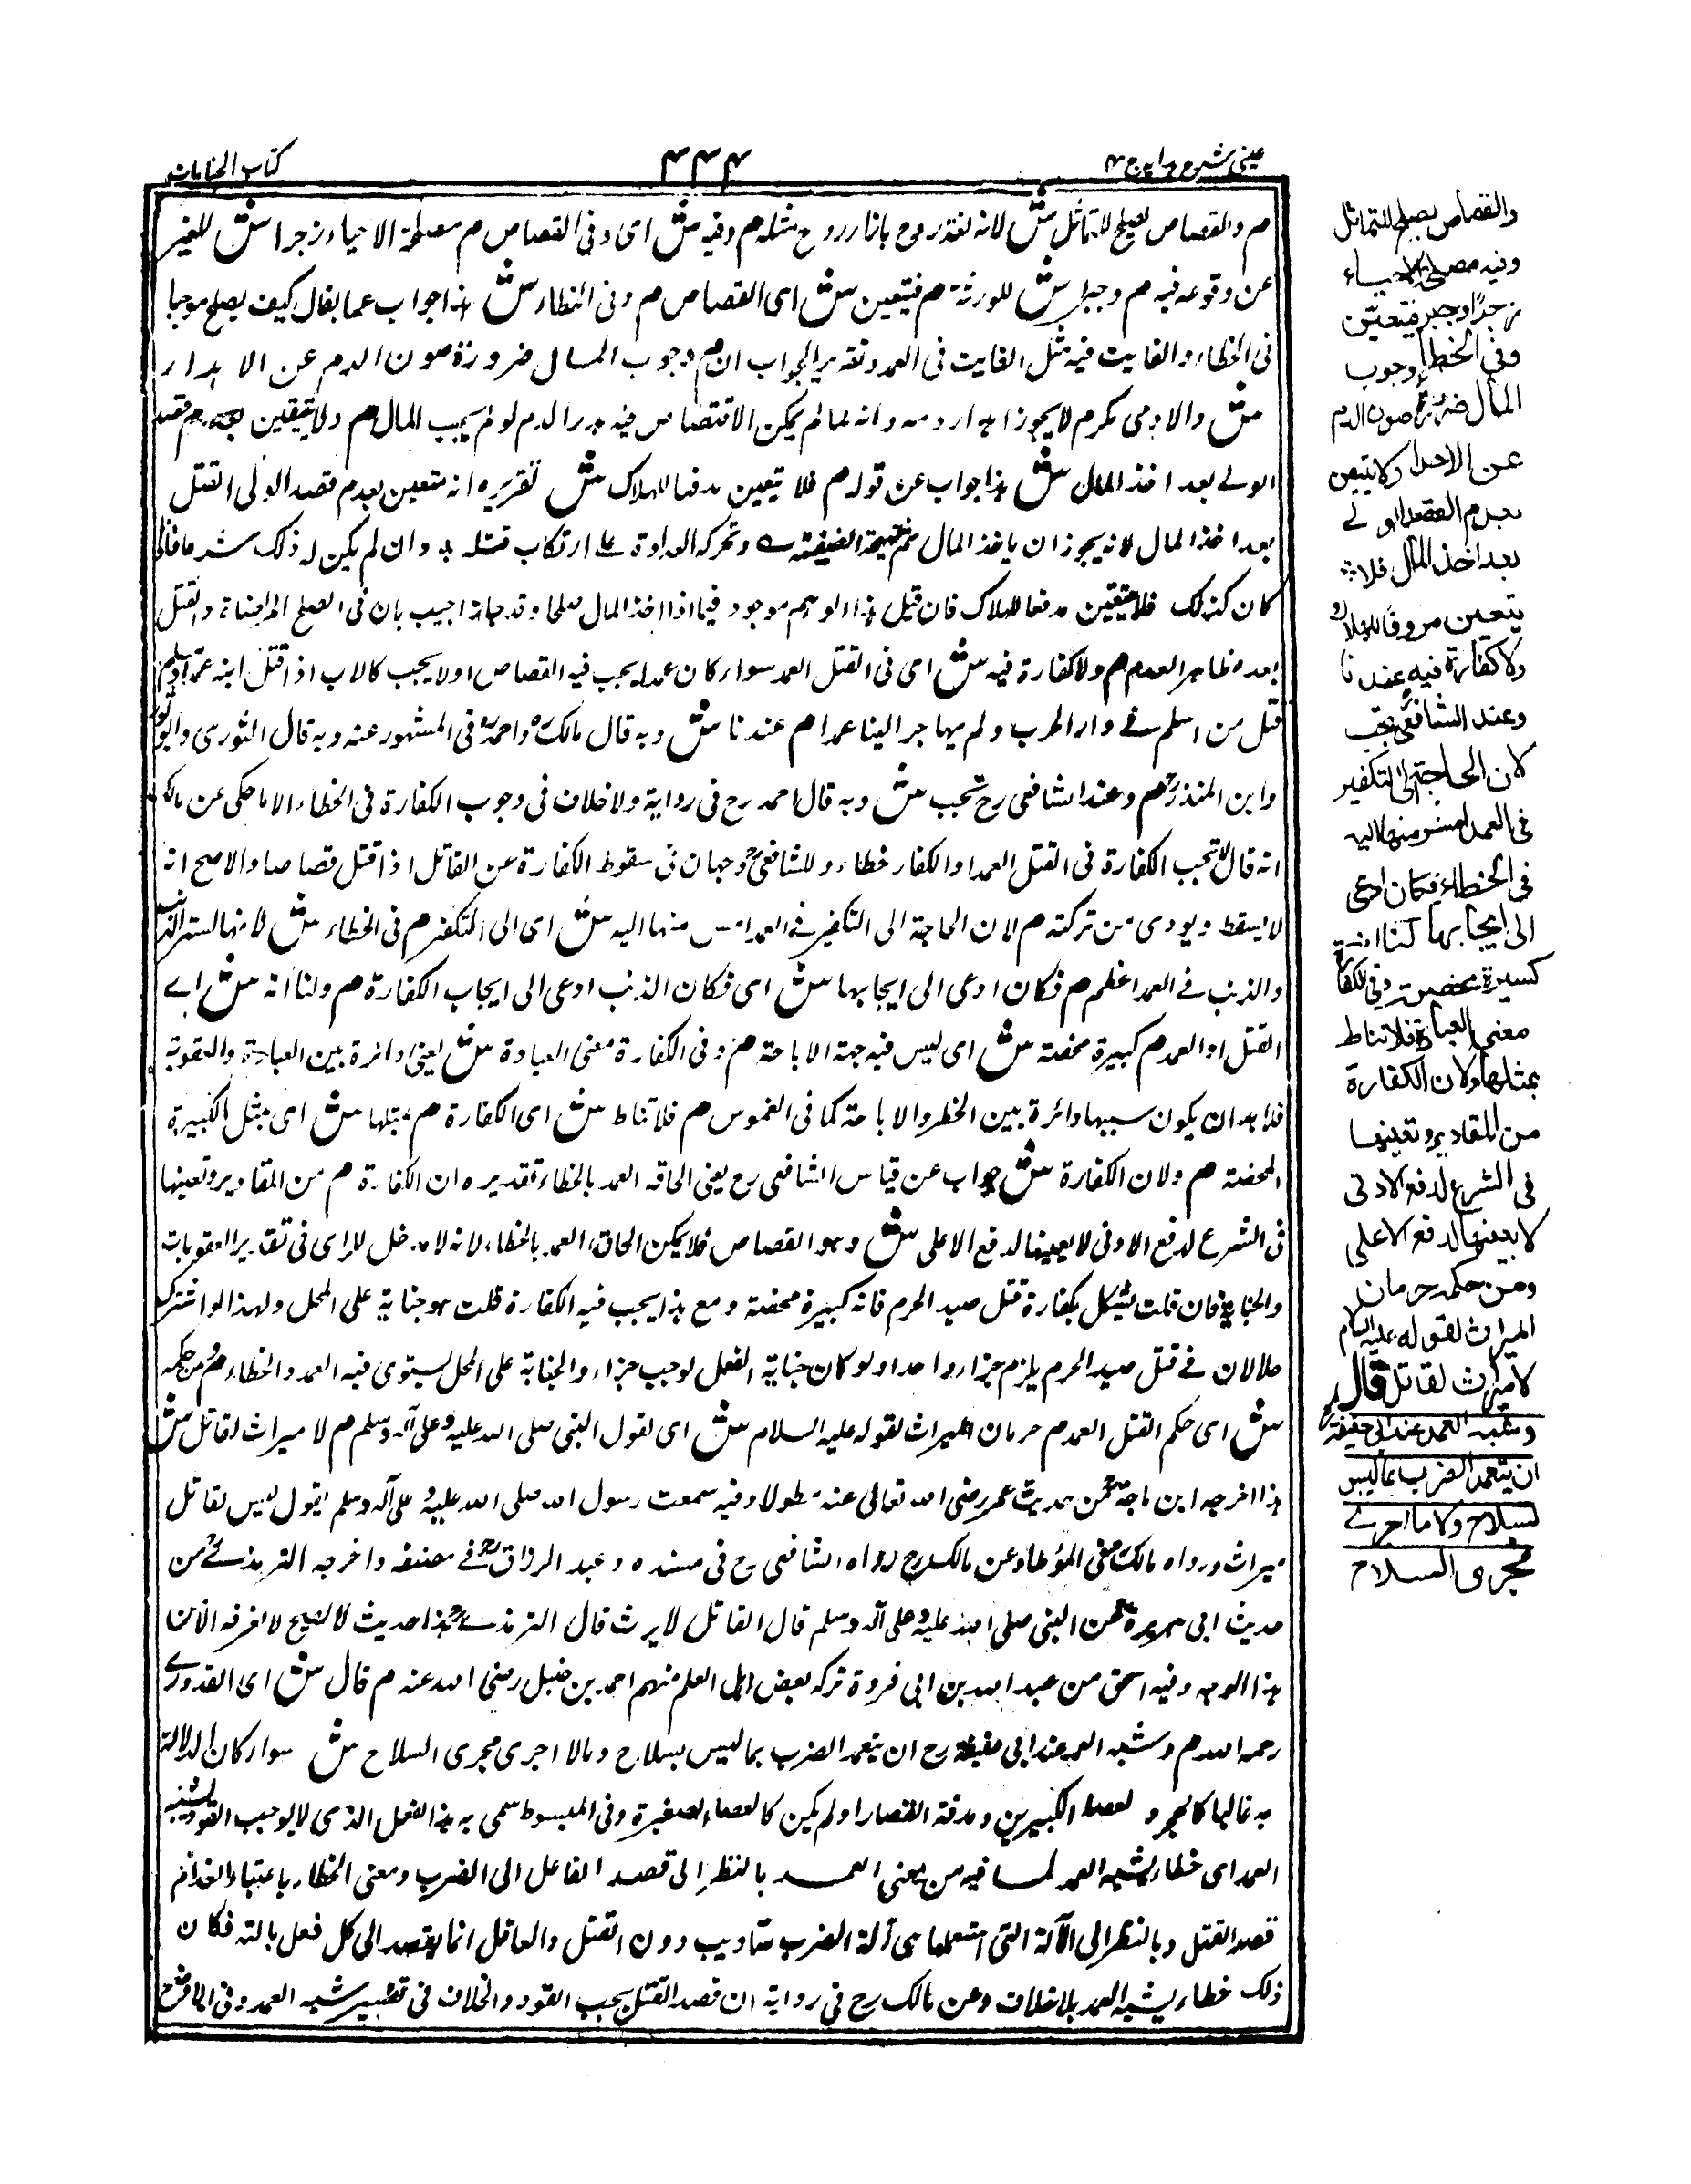 عینی شرح ہدایہ ج ۴
۴۴۴
کتاب الجنایات
م والقصاص یصلح للتماثل ش لانہ روح بازاء روح مثلہ م وفیہ ش ای وفی القصاص م مصلحة الاحیاء زجرا ش للغیر
عن وقوعہ فیہ م وجبرا ش للورثة م فیتعین ش ای القصاص م وفی الخطاء ش ہذا جواب عما یقال کیف یصلح موجبا
فی الخطاء والفایت فیہ مثل الفایت فی العمد وتقریر الجواب ان م وجوب المال ضرورة صون الدم عن الاہدار
ش والادمی مکرم لا یجوز اہدار دمہ وانہ لما لم یمکن الاقتصاص فیہ ہدر الدم لو لم یجب المال م ولا یتیقن بعدم قصد
الولے بعد اخذ المال ش ہذا جواب عن قولہ م فلا یتعین مدفعا للہلاک ش تقریرہ انہ متعین بعدم قصد الولی القتل
بعد اخذ المال لانہ یجوز ان یاخذ المال ثم وتحرکہ العداوة علی ارتکاب قتلہ وان لم یکن لہ ذلک شرعا فاذا
کان کذلک فلا یتعین مدفعا للہلاک فان قیل ہذا الوہم موجود فیما اذا اخذ المال صلحا وقد جاز اجیب بان فی الصلح المراضاة والقتل
بعدہ ظاہر العدم م ولا کفارة فیہ ش ای فی القتل العمد سواء کان عمدا یجب فیہ القصاص اولا یجب کالاب اذا قتل ابنہ عمدا
قتل من اسلم فے دار الحرب ولم یہاجر الینا عمدا م عندنا ش وبہ قال مالک واحمد فی المشہور عنہ وبہ قال الثوری وابو ثور
وابن المنذر م وعند الشافعی رح تجب ش وبہ قال احمد رح فی روایة ولا خلاف فی وجوب الکفارة فی الخطاء الا ما حکی عن مالک
انہ قال لا تجب الکفارة فی القتل العمد او الکفار خطاء وللشافعی وجہان فی سقوط الکفارة عن القاتل اذا قتل قصاصا والاصح انہ
لا یسقط ویودی من ترکتہ م لان الحاجة الی التکفیر فے العمد امس منہا الیہ ش ای الی التکفیر م فی الخطاء ش لانہا لستر الذنب
والذنب فے العمد اعظم م فکان ادعی الی ایجابہا ش ای فکان الذنب ادعی الی ایجاب الکفارة م ولنا انہ ش اے
القتل العمد م کبیرة محضة ش ای لیس فیہ جہة الاباحة م وفی الکفارة معنی العبادة ش یعنی دائرة بین العبادة والعقوبة
فلا بد ان یکون سببہا دائرة بین الحظر والاباحة کما فی الغموس م فلا تناط ش ای الکفارة م بمثلہا ش ای بمثل الکبیرة
المحضة م ولان الکفارة ش جواب عن قیاس الشافعی رح یعنی الحاقہ العمد بالخطاء تقدیرہ ان الکفارة م من المقادیر وتعینہا
فی الشرع لدفع الادنی لا یعینہا لدفع الاعلی ش وہو القصاص فلا یمکن الحاق العمد بالخطاء لانہ لا مدخل للرای فی تقدیر العقوبات
والجنایة فان قلت یشکل بکفارة قتل صید الحرم فانہ کبیرة محضة ومع ہذا یجب فیہ الکفارة قلت ہو جنایة علی المحل ولہذا لو اشترک
حلالان فے قتل صید الحرم یلزم جزاء واحد ولو کان جنایة الفعل لوجب جزاء والجنایة علی المحل یستوی فیہ العمد والخطاء م ومن حکمہ
ش ای حکم القتل العمد م حرمان المیراث لقولہ علیہ السلام ش ای لقول النبی صلی اللہ علیہ وعلی آلہ وسلم م لا میراث لقاتل ش
ہذا اخرجہ ابن ماجة عن حدیث عمر رضی اللہ تعالی عنہ مطولا وفیہ سمعت رسول اللہ صلی اللہ علیہ وعلی آلہ وسلم یقول لیس لقاتل
میراث ورواہ مالک فی المؤطا وعن مالک رح رواہ الشافعی رح فی مسندہ وعبد الرزاق فے مصنفہ واخرجہ الترمذے من
حدیث ابی ہریرة عن النبی صلی اللہ علیہ وعلی آلہ وسلم قال القاتل لا یرث قال الترمذے ہذا حدیث لا یصح لا نعرفہ الا من
ہذا الوجہ وفیہ اسحق بن عبد اللہ بن ابی فروة ترکہ بعض اہل العلم منہم احمد بن حنبل رضی اللہ عنہ م قال ش ای القدورے
رحمہ اللہ م وشبہ العمد عند ابی حنیفة رح ان یتعمد الضرب بما لیس بسلاح وما لا اجری مجری السلاح ش سواء کان الہلاک
بہ غالبا کالحجر والعصا الکبیرین ومدقة القصار او لم یکن کالعصا الصغیرة وفی المبسوط سمی بہ ہذا الفعل الذی لا یوجب القود شبہ
العمد ای خطاء یشبہ العمد لما فیہ من معنی العمد بالنظر الی قصد الفاعل الی الضرب ومعنی الخطاء باعتبار انعدام
قصد القتل وبالنظر الی الآلة التی استعملہا ہی آلة الضرب تادیب دون القتل والعاقل انما یقصد الی کل فعل بالتہ فکان
ذلک خطاء یشبہ العمد بلا خلاف وعن مالک رح فی روایة ان قصد القتل یجب القود والخلاف فی تفسیر شبہ العمد وفی
والقصاص یصلح للتماثل
وفیہ مصلحة الاحیاء
زجرًا وجبرا فیتعین
وفی الخطاء وجوب
المال ضرورة صون الدم
عن الاهدار ولا یتیقن
بعدم القصد الولے
بعد اخذ المال فلا
یتعین مدفعا للهلاک
ولا کفارة فیہ عندنا
وعند الشافعی تجب
لان الحاجة الی التکفیر
فی العمد امس منها الیہ
فی الخطاء فکان ادعی
الی ایجابها ولنا انہ
کبیرة محضة وفی الکفارة
معنی العبادة فلا تناط
بمثلها ولان الکفارة
من المقادیر وتعینها
فی الشرع لدفع الادنی
لا یعینها لدفع الاعلی
ومن حکمہ حرمان
المیراث لقولہ علیہ السلام
لا میراث لقاتل قال
وشبہ العمد عند ابی حنیفة
ان یتعمد الضرب بما لیس
بسلاح ولا ما اجرے
مجری السلاح